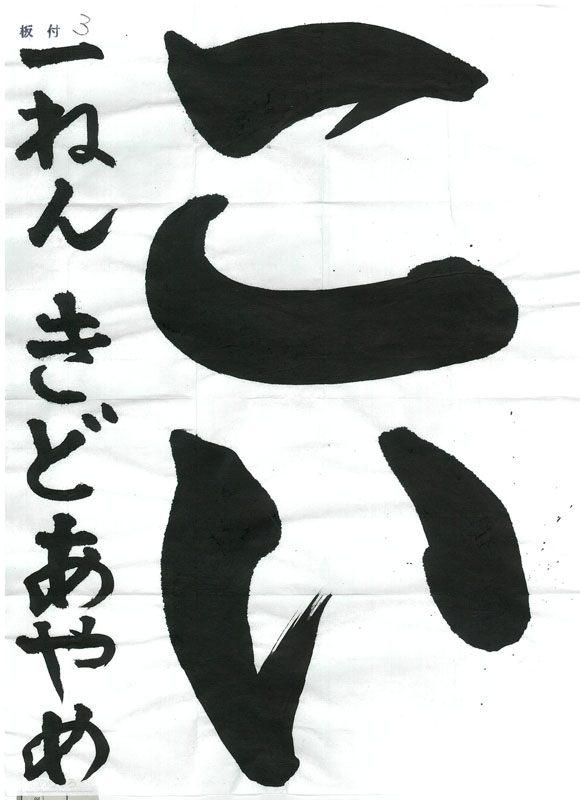 こい
板付 3
一ねん きどあやめ